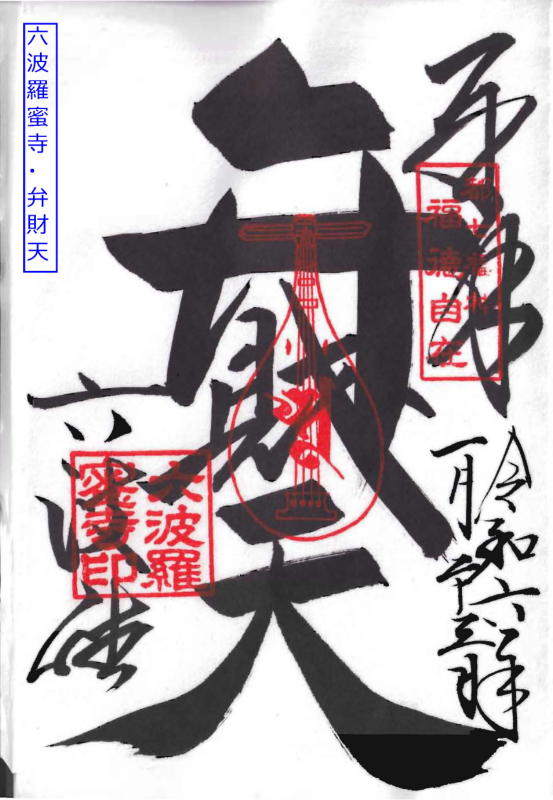 六波羅蜜寺・弁財天
奉拝
都七福神
福徳自在
令和六年
一月十三日
弁財天
六波羅
蜜寺印